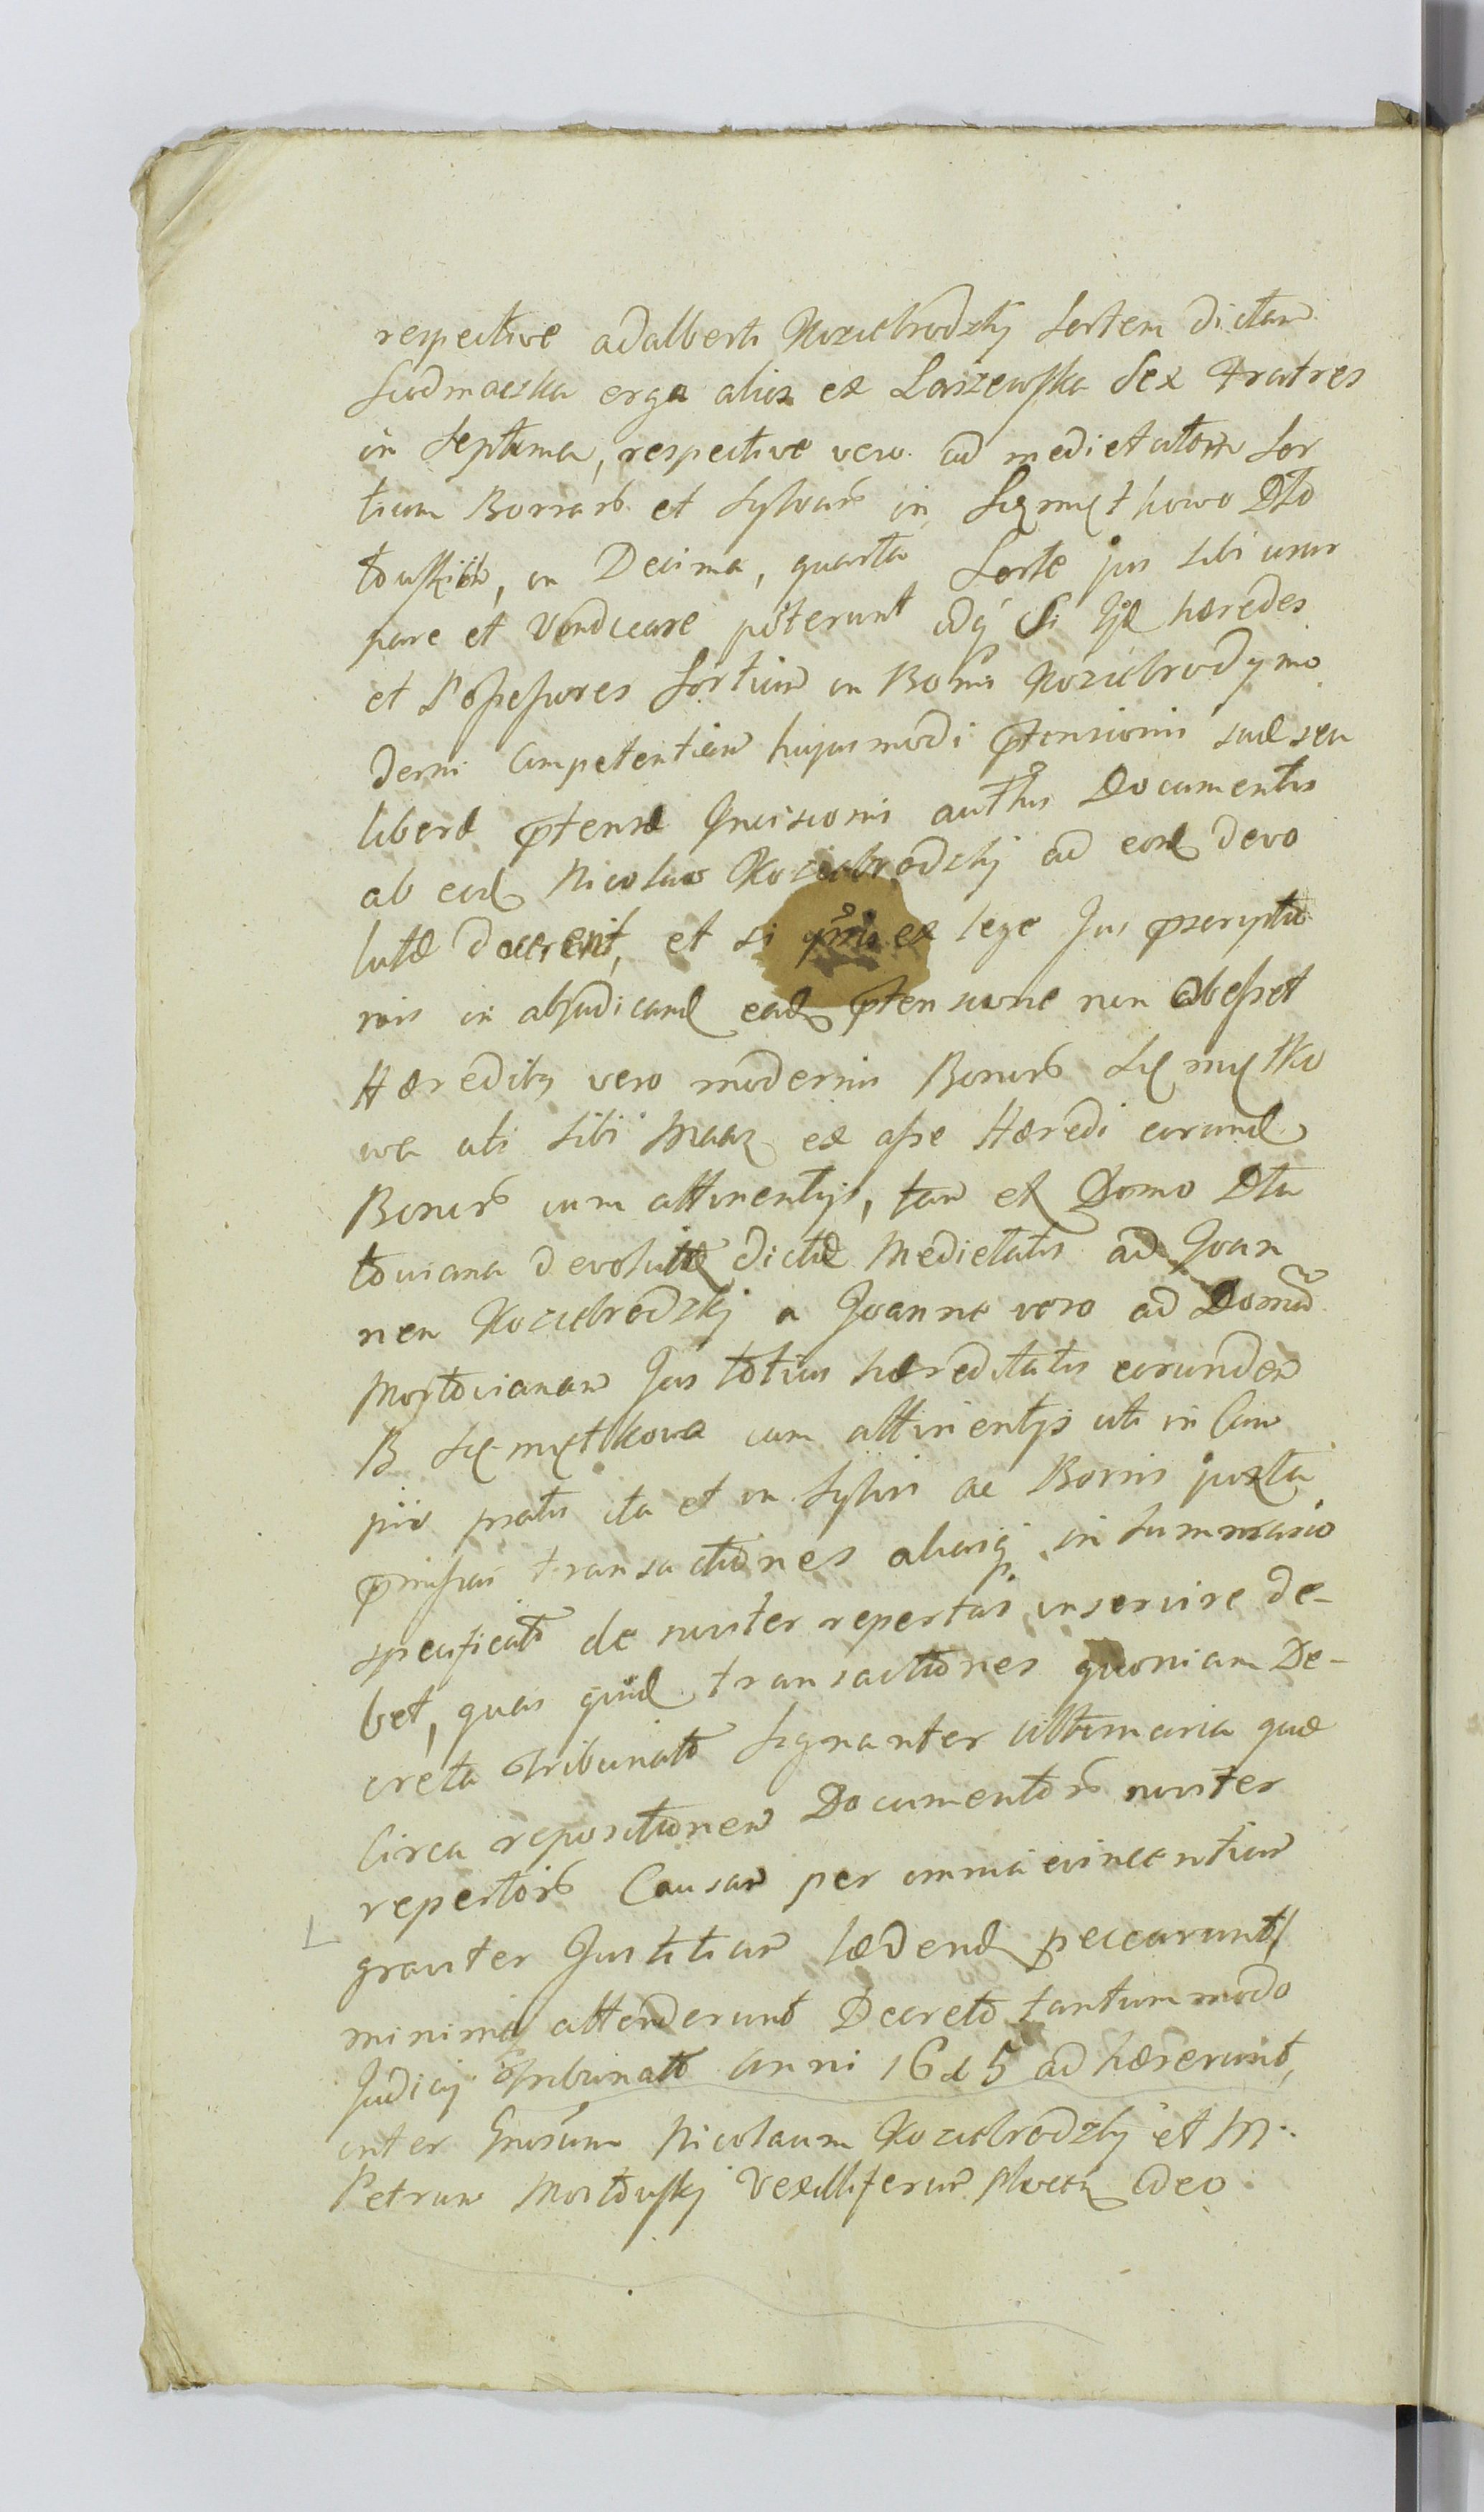 respective adalberti Koziebrodzkj Sortem dictam
Siedmacska erga alios ex Laszewska Sex Fratres
in Septima, respective vero ad medietatem Sor
tium Borrarū et Sylvarū in Sęmęthowo Dło
touskich, in Decima, quarta Sorte jus sibi usur
pare et Vendicare poterunt idq̃ Si Ijd hæredes
et Poſseſsores Sortium in Bonis Koziebrody mo
derni Competentiam hujusmodi p̃tensionis suæ seu
liberæ p̃tensæ Incisionis autt̃tis Documentis
ab eod Nicolao Koziebrodzkj ad eosd devo
lutæ docerent, et si ex lege Jus p̃scriptio
nis in abjudicand eadē p̃tensione non obeſset
Hæredibg vero modernis Bonorū Sęmętko
wa uti sibi Maāz ex aſse Hæredi eorund
Bonorū cum attinentijs, tam ex Domo Dłu
toviana devolutæ dictæ Medietatis ad Joan
nem Koziebrodzkj a Joanne vero ad Domū
Mostovianam Jus totius hæreditatis eorundem
B Sęmętkowa cum attinentijs uti in Cam
pis pratis ita et in Sylvis ac Borris juxta
p̃miſsas transactiones aliasq̃ in Summario
specificatt de noviter repertas inservire de-
bet, quas quid transactiones quoniam De-
creta Tribunatt Signanter ultimaria quæ
Circa repositionem Documentorū noviter
repertorū Causam per omnia evincentium
graviter Justitiam lædend peccarunt,
minime attenderunt Decreto tantummodo
Judicij Tribunatt anni 1645 adhæserunt,
inter Gnosum Nicolaum Koziebrodzkj et M.
Petrum Mostouskj Vexilliferum Plocen adeo